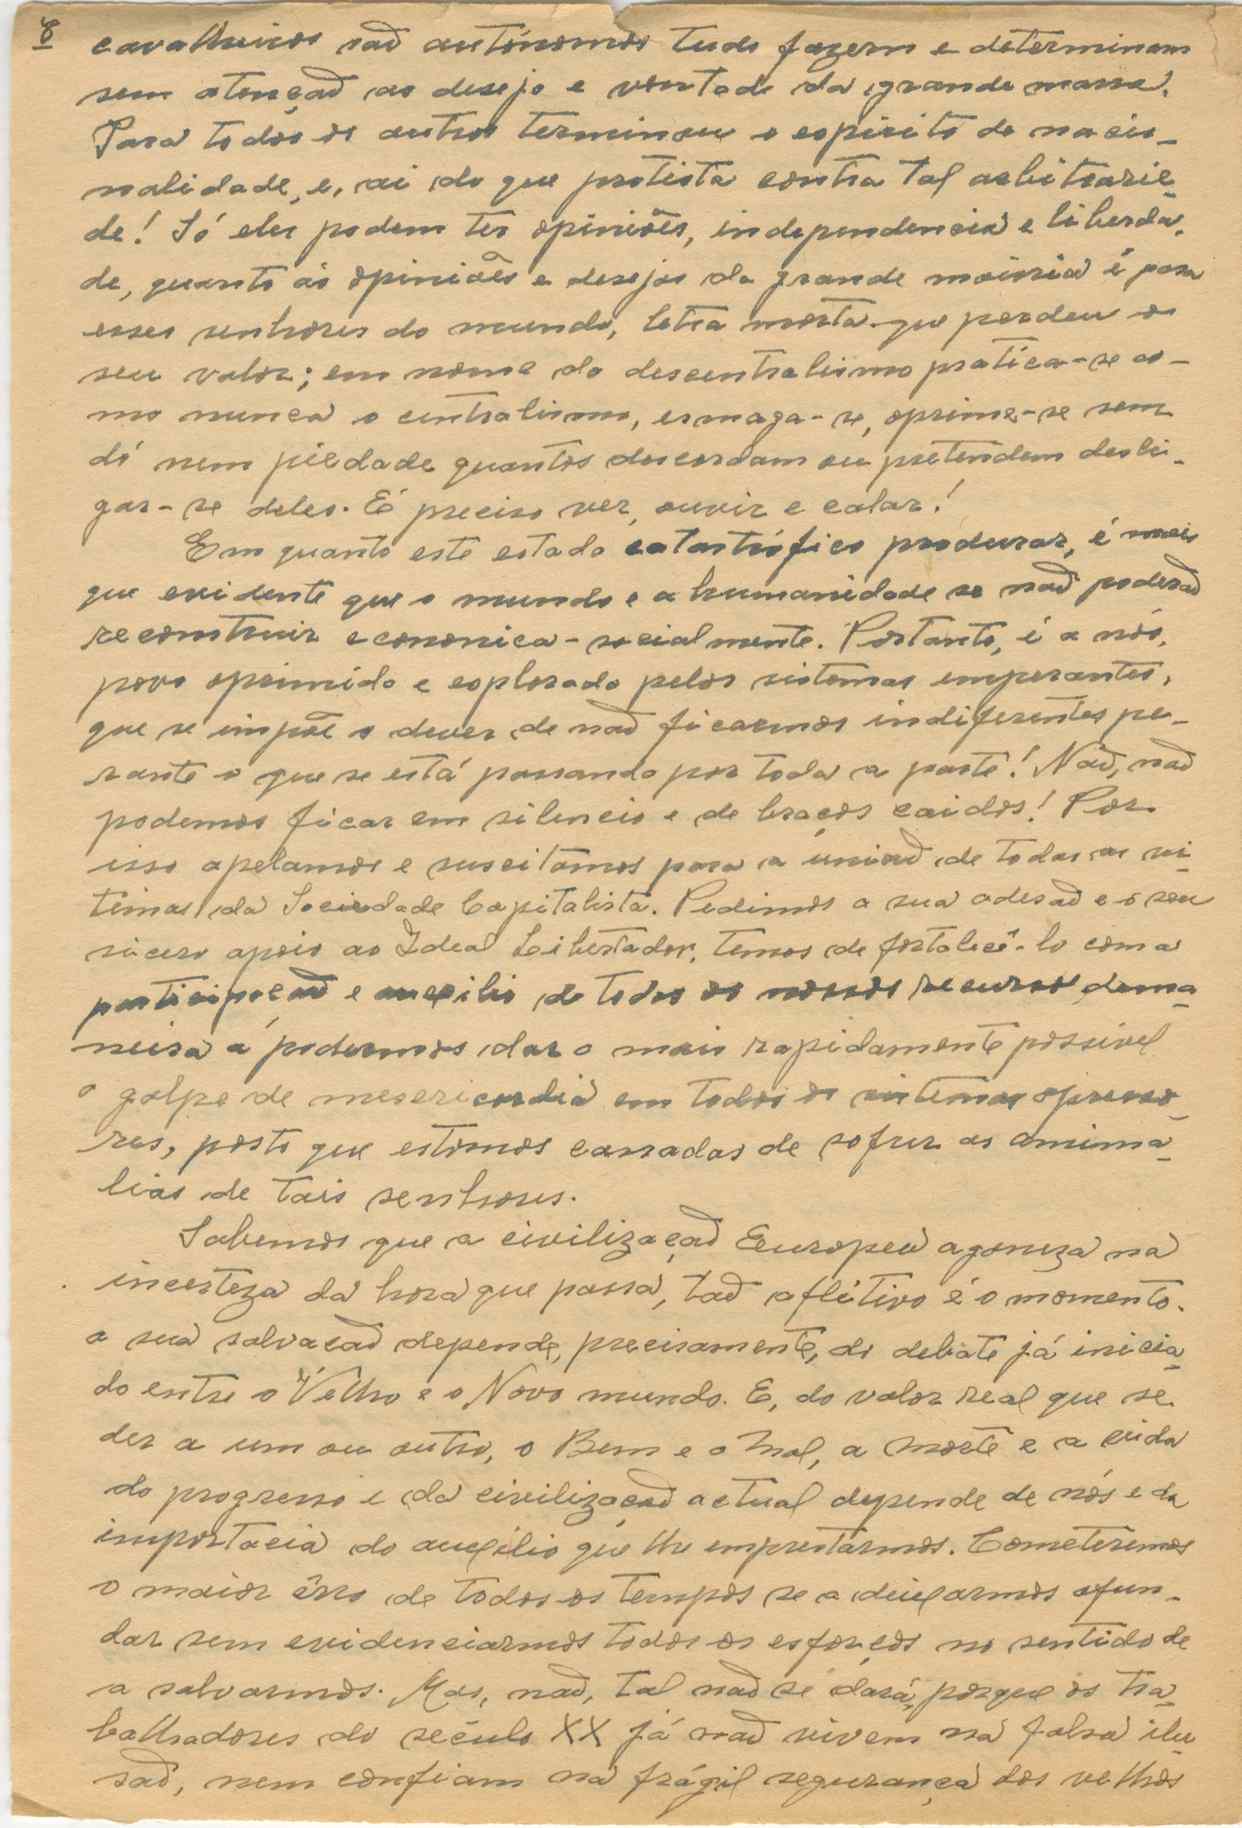 8 cavalheiros são autónomos tudo fazem e determinam
sem atenção ao desejo e vontade da grande massa.
Para todos os outros terminou o espirito de nacio-
nalidade, e, ai do que protesta contra tal arbitrarie-
de! Só eles podem ter opiniões, independencia e liberda-
de, quanto ás opiniões e desejos da grande maioria é para
esses senhores do mundo, letra morta que perdeu o
seu valor; em nome do descentralismo pratica-se co-
mo nunca o centralismo, esmaga-se, oprime-se sem
dó nem piedade quantos discordam ou pretendem desli-
gar-se deles. É preciso ver, ouvir e calar!
Em quanto este estado catastrófico produrar, é mais
que evidente que o mundo e a humanidade se não poderão
reconstruir economica-socialmente. Portanto, é a nós,
povo oprimido e explorado pelos sistemas imperantes,
que se impõe o dever de não ficarmos indiferentes pe-
rante o que se está passando por toda a parte! Não, não
podemos ficar em silencio e de braços caidos! Por
isso apelamos e suscitamos para a únião de todas as vi-
timas da Sociedade Capitalista. Pedimos a sua adesão e o seu
sincero apoio ao Ideal Libertador, temos de fortalecê-lo com a
participação e auxilio de todos os nossos recursos de ma-
neira a podermos dar o mais rapidamente possivel
o golpe de misericordia em todos os sistemas opresso-
res, posto que estamos cansados de sofrer as anima-
lias de tais senhores.
Sabemos que a civilização Europeu agoniza na
incerteza da hora que passa, tão aflitivo é o momento.
a sua salvação depende, precisamente, do debate já inicia-
do entre o Velho e o Novo mundo. E, do valor real que se
der a um ou outro, o Bem e o Mal, a Morte e a vida
do progresso e da civilização actual depende de nós e da
importacia do auxilio que lhe emprestármos. Cometeremos
o maior êrro de todos os tempos se a deixarmos afun-
dar sem evidenciarmos todos os esforços no sentido de
a salvarmos. Mas, não, tal não se dará, porque os tra-
balhadores do seculo XX já não vivem na falsa ilu-
são, nem confiam na frágil segurança dos velhos